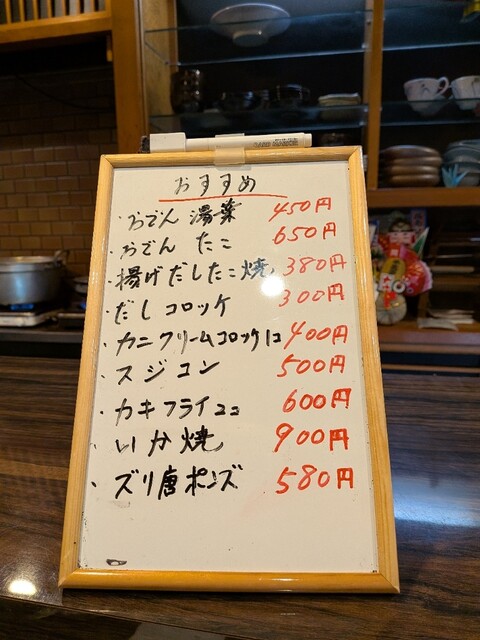 おすすめ
・おでん 湯葉 450円
・おでん たこ 650円
・揚げだしたこ焼 380円
・だしコロッケ 300円
・カニクリームコロッケ1コ 400円
・スジコン 500円
・カキフライ2コ 600円
・いか焼 900円
・ズリ唐ポンズ 580円